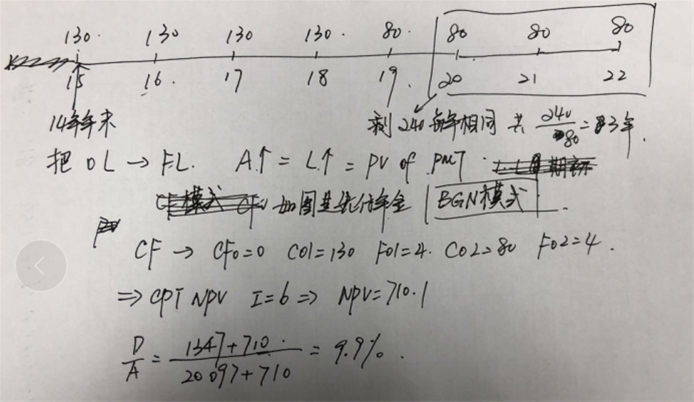 130. 130 130 130. 80. 80 80 80
15 16. 17 18 19. 20 21 22
14年年末 剩240 每年相同 共 240/80=3年.
把 OL → FL. A↑ = L↑ = PV of PMT.
CF模式 如图是先付年金 BGN模式.
CF → CF0=0 C01=130 F01=4. C02=80 F02=4.
⇒ CPT NPV I=6 ⇒ NPV=710.1
D/A = (1347+710.)/(20097+710) = 9.9%.